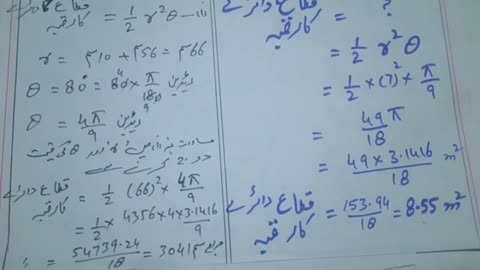 قطاع دائرے کا رقبہ = 1/2 r²θ
r = 510 + 556 = 566
θ = 80° = 80 × π/180 ریڈین
θ = 4π/9 ریڈین
میں r اور θ کی قیمت
درج کرنے سے
قطاع دائرے کا رقبہ = 1/2 (66)² × 4π/9
= 1/2 × 4356 × 4 × 3.1416/9
= 54739.24/18 = 3041 مربع
قطاع دائرے کا رقبہ = ?
= 1/2 r² θ
= 1/2 × (7)² × π/9
= 49π/18
= 49 × 3.1416/18 m²
قطاع دائرے کا رقبہ = 153.94/18 = 8.55 m²